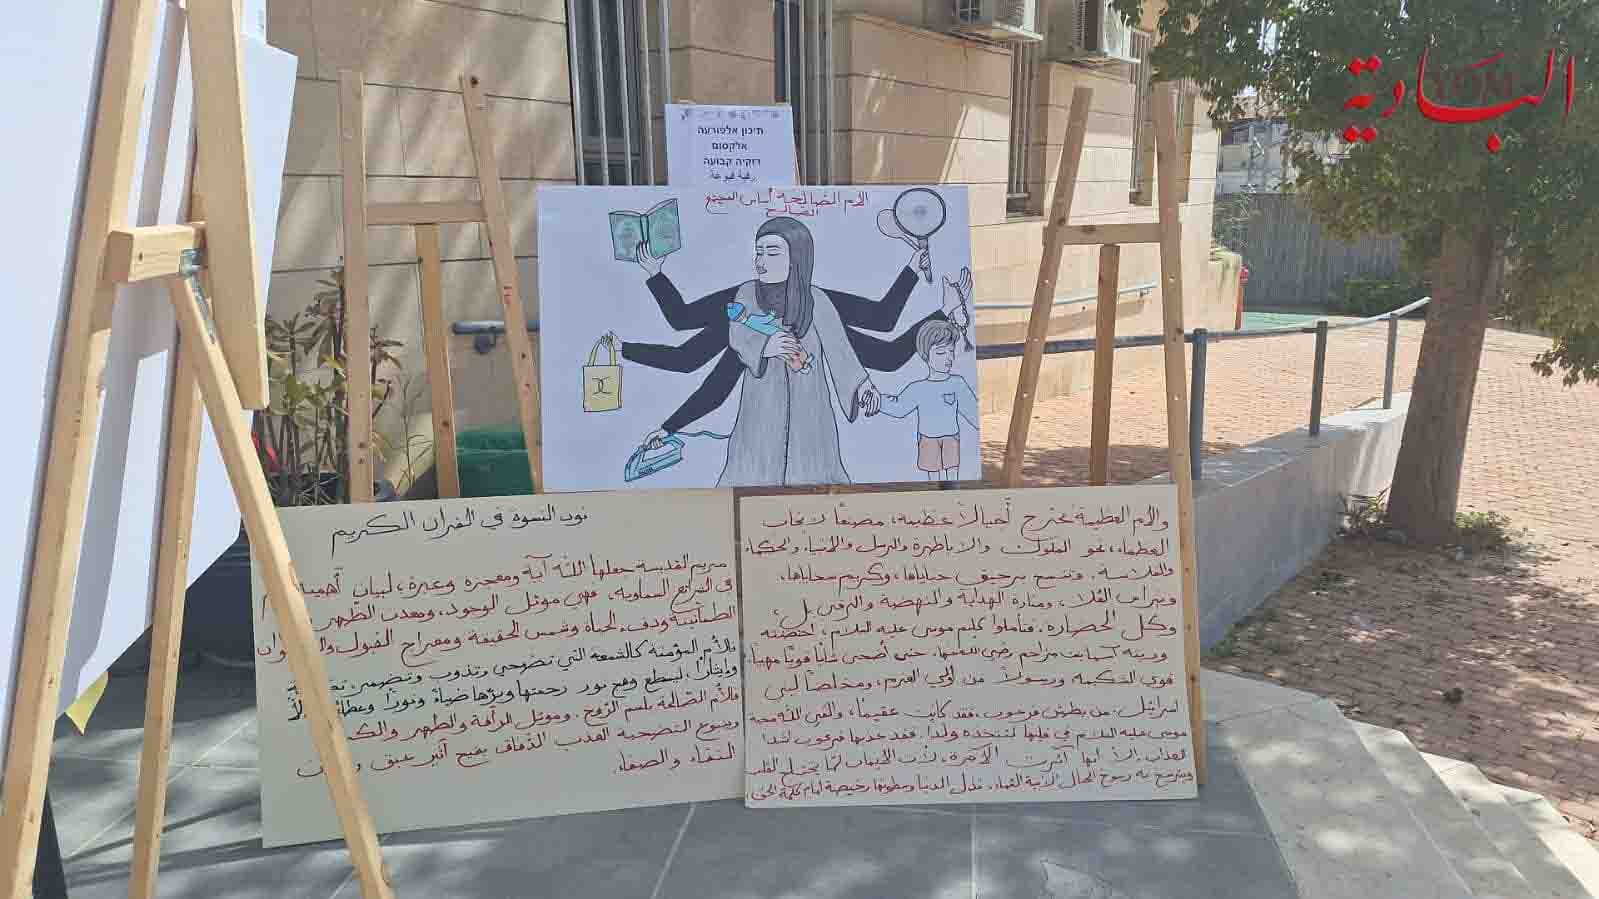 البادية
תיכון אלפורעה
אלקסום
רוקיה קבועה
رقية قبوعة
الأم الصالحة أساس المجتمع
الصالح
نون النسوة في القرآن الكريم
مريم القديسة جعلها الله آية ومعجزة وعبرة، لبيان
في الشرائع السماوية. فهي موئل الوجود، ومعدن الطهر
الطمأنينة ودفء الحياة وشمس الحقيقة ومعراج القبول
فالأم المؤمنة كالشمعة التي تضحي وتذوب وتنصهر
وإيثارًا، ليسطع وهج نور رحمتها وبرّها ضياءً ونورًا
فالأم الصالحة بلسم الروح، وموئل الرأفة والطهر
وينبوع التضحية العذب الدفاق بفيح أثير عبق
النقاء والصفاء.
والأم العظيمة تخرج أجيالاً عظيمة، مصنعًا لإنجاب
العظماء، نحو الملوك والأباطرة والرسل والأنبياء والحكماء
والفلاسفة. برحيق حناياها، وكريم سجاياها،
ونبراس العُلا، ومنارة الهداية والنهضة والرقي بل،
وكل الحضارة. فتأملوا كليم موسى عليه السلام، احتضنته
وربته آسيا بنت مزاحم رضي الله عنها، حتى أضحى شابًا قويًا مهيبًا،
قوي الشكيمة ورسولاً من أولي العزم، ومخلصًا لبني
إسرائيل، من بطش فرعون، فقد كانت عقيمًا، وألقى الله محبة
موسى عليه السلام في قلبها لتتخذه ولدًا. فقد عذبها فرعون أشد
العذاب، إلا أنها آثرت الآخرة، لأن الإيمان لما يدخل القلب